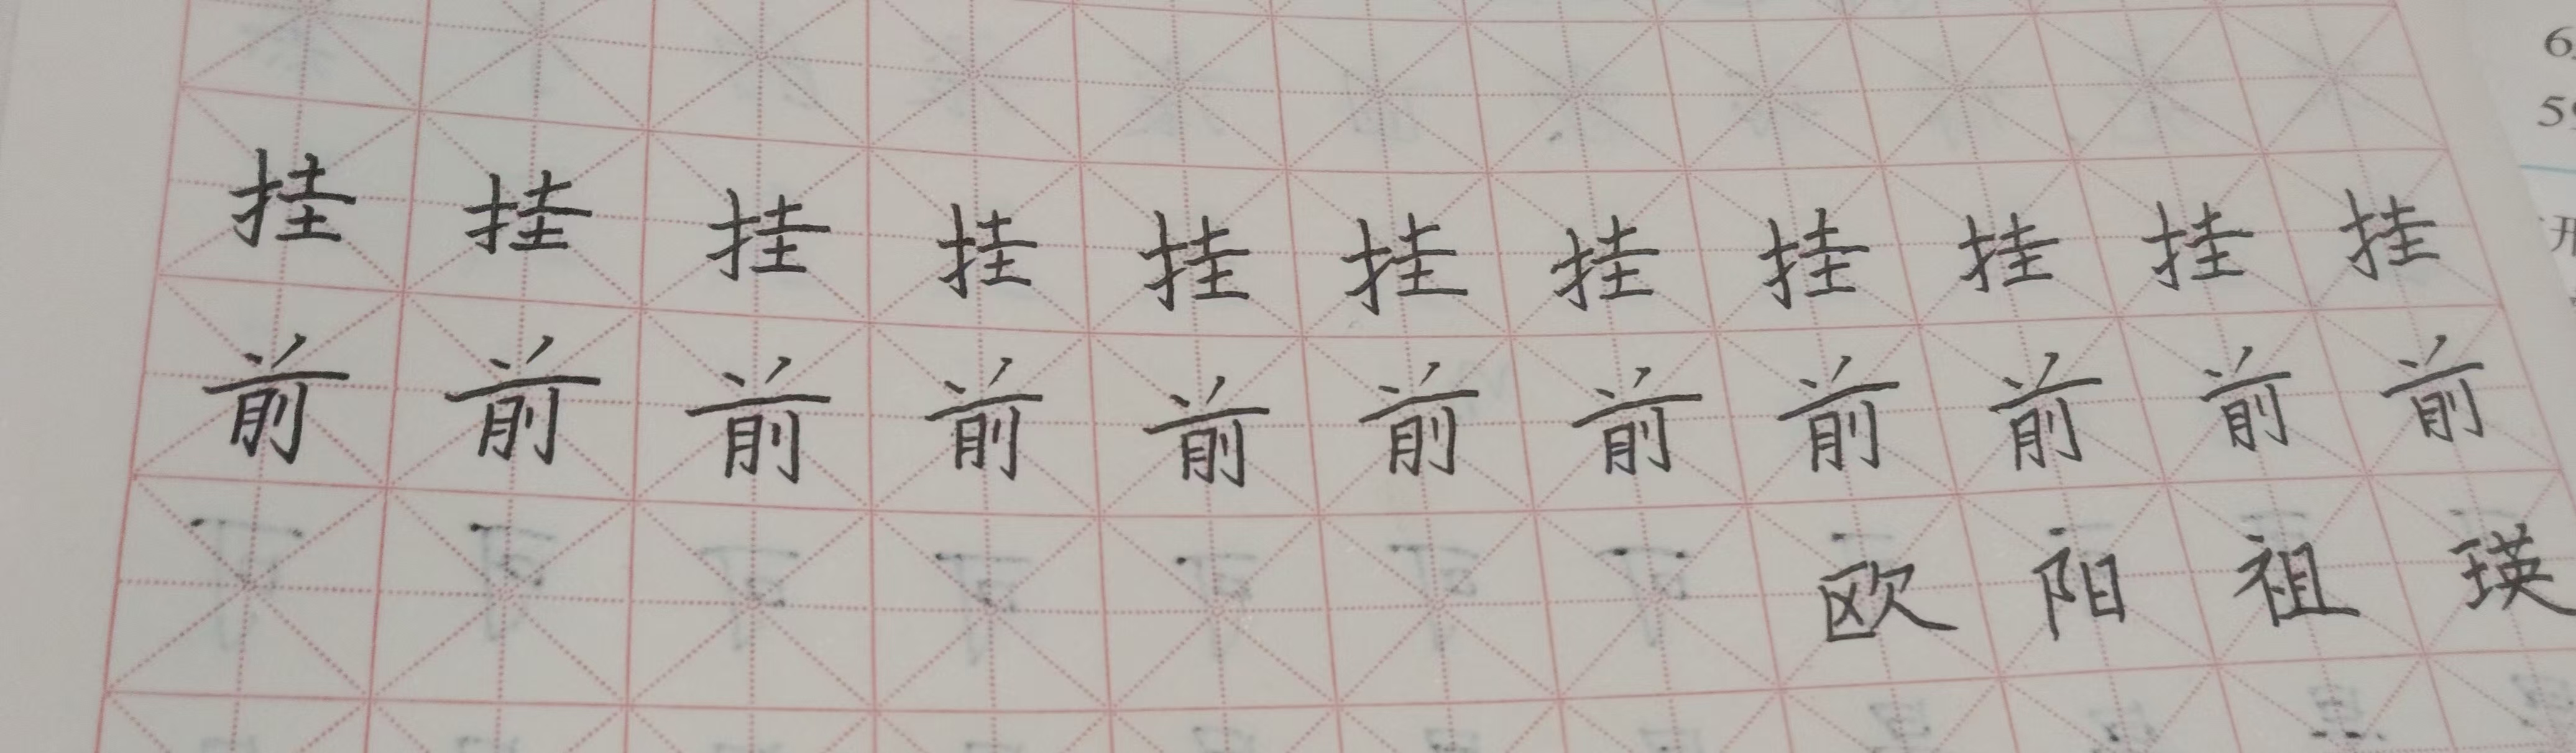 挂挂挂挂挂挂挂挂挂挂挂
前前前前前前前前前前前
欧阳祖瑛
6
5